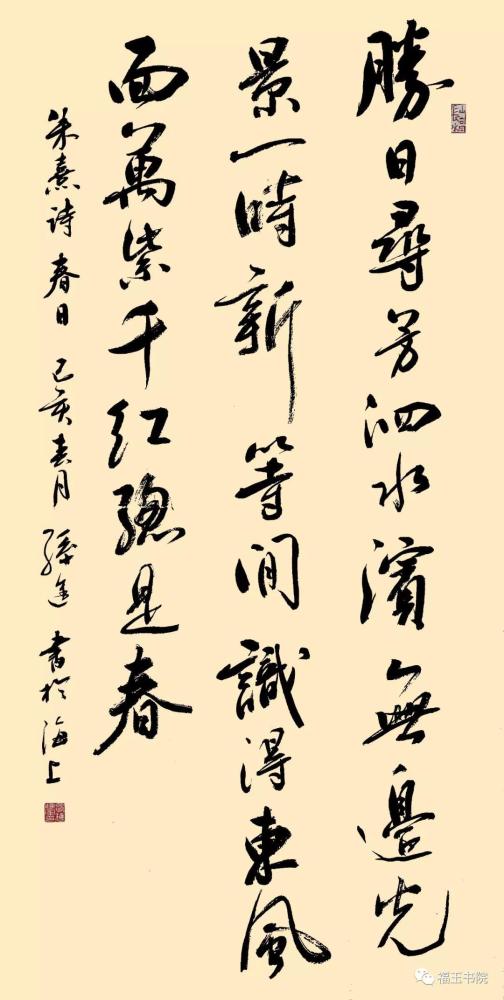 勝日尋芳泗水濱無邊光
景一時新等閒識得東風
面萬紫千紅總是春
朱熹詩春日 己亥春月 孫進 書於海上
福玉书院